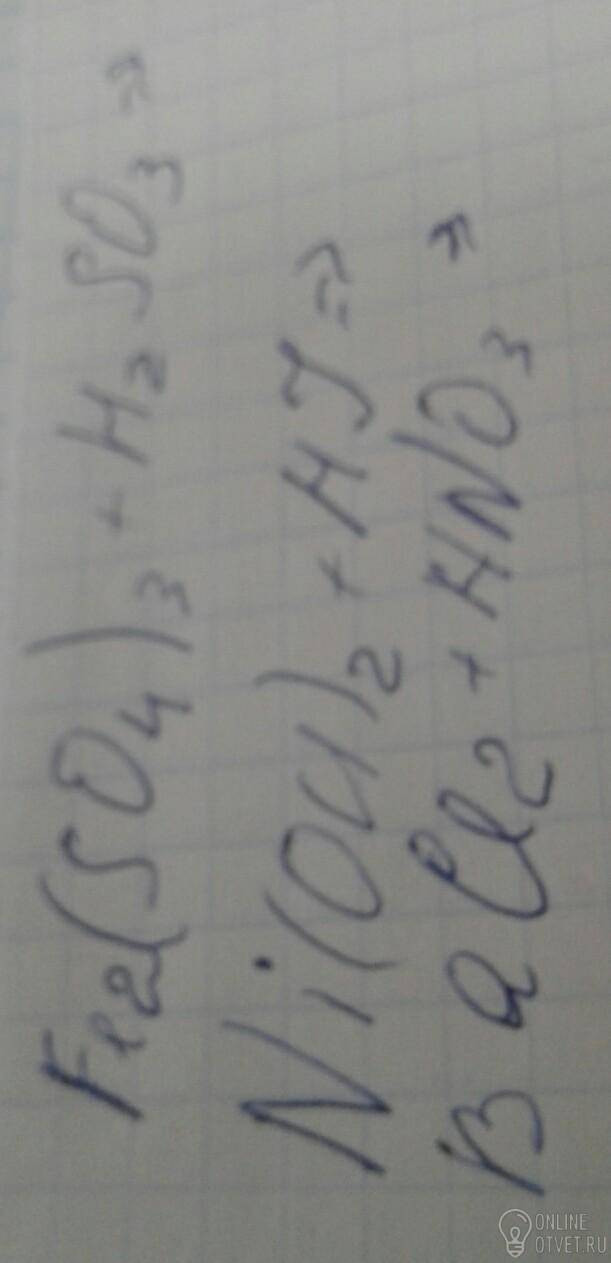 Fe2(SO4)3 + H2SO3 →
Ni(OH)2 + HJ =>
BaCl2 + HNO3 →
ONLINE
OTVET.RU